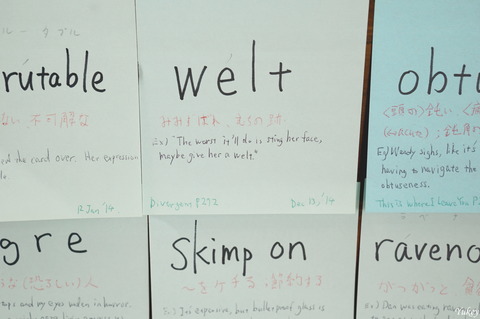 ルータブル
rútable
ない 不可解な
ed the card over. Her expression
12 Jan '14
wélt
みみずばれ、
Ex) "The worst it'll do is sting her face,
maybe give her a welt."
Divergent P272
Dec 13, '14
obtu
〈頭の〉鈍い、
Ex) Wendy sighs, like it's
having to navigate the
obtuseness.
This is where I Leave You
gre
(恐ろしい)人
and my eyes widen in horror.
skimp on
〜をケチる、節約する
expensive, but bulletproof glass is
ráveno
がつがつと
Ex) Dan was eating
Yukey